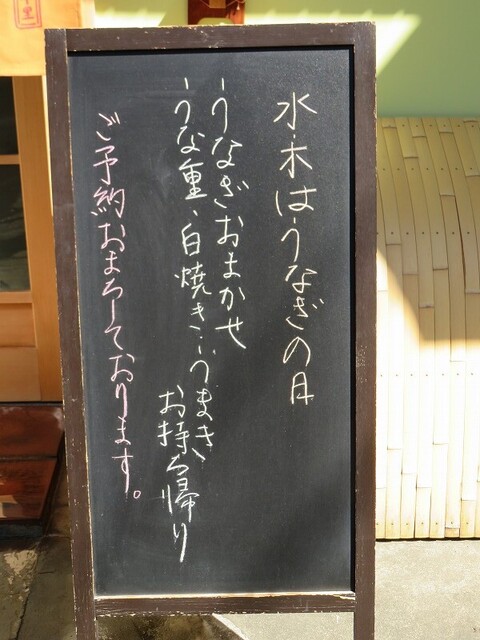 水・木はうなぎの日
うなぎおまかせ
うな重、白焼き…うまき
お持ち帰り
ご予約おまちしております。